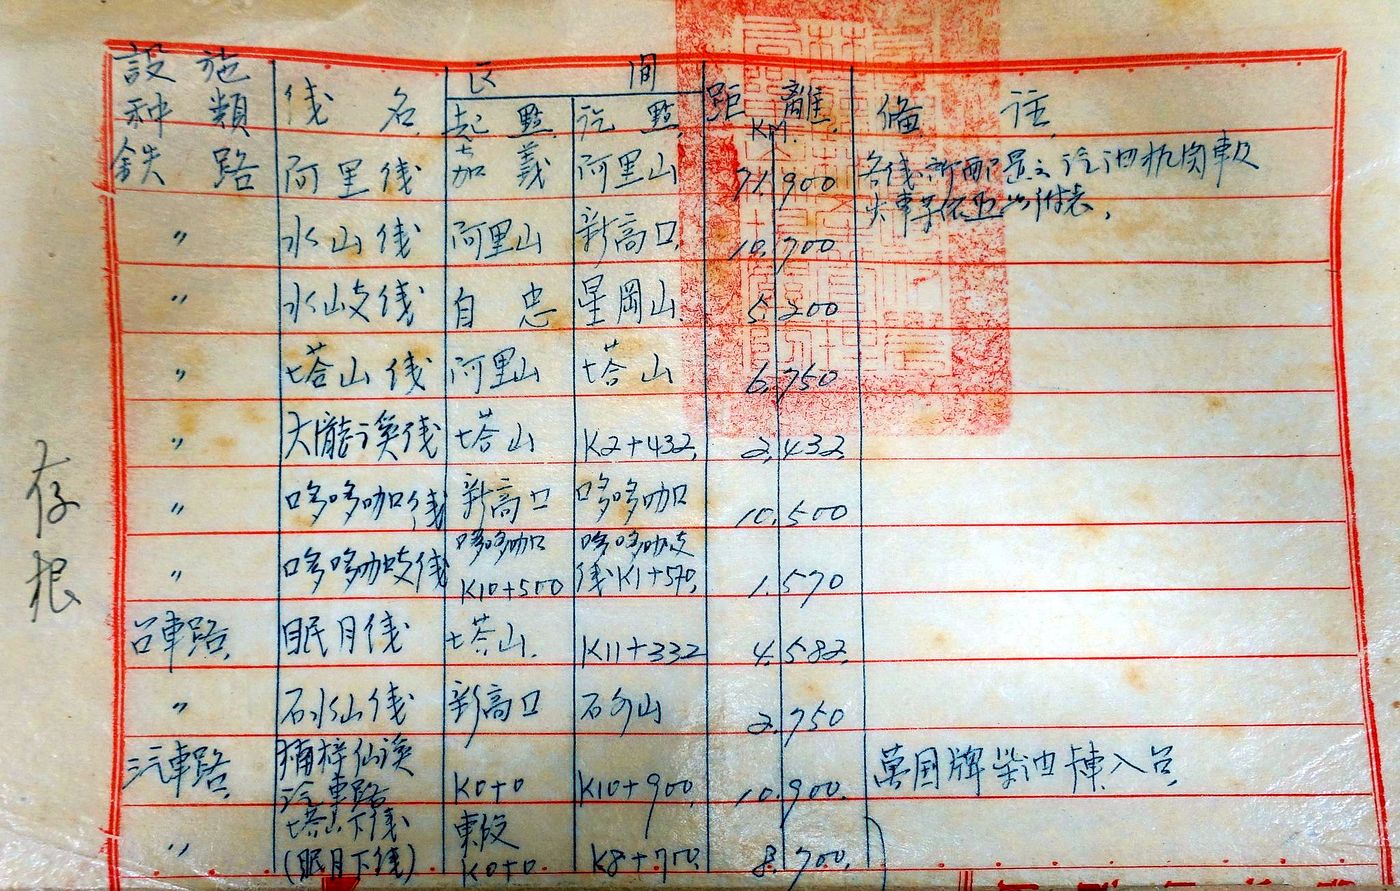 設施種類 线名 区间 距離 備註
起點 訖點 KM
鉄路 阿里线 嘉義 阿里山 71.900 各线所配置之汽油机関車及
火車等依照附表.
〃 水山线 阿里山 新高口 10.700
〃 水山支线 自忠 星岡山 5.200
〃 塔山线 阿里山 塔山 6.750
〃 大瀧溪线 塔山 K2+432 2.432
〃 哆哆咖线 新高口 哆哆咖 10.500
〃 哆哆咖支线 哆哆咖 K10+500 哆哆咖支线K1+570 1.570
台車路 眠月线 塔山 K11+332 4.582
〃 石水山线 新高口 石水山 2.750
汽車路 楠梓仙溪汽車路 K0+0 K10+900 10.900 萬国牌柴油車入台
〃 塔山下线 東段
(眠月下线) K0+0 K8+700 8.700
存根